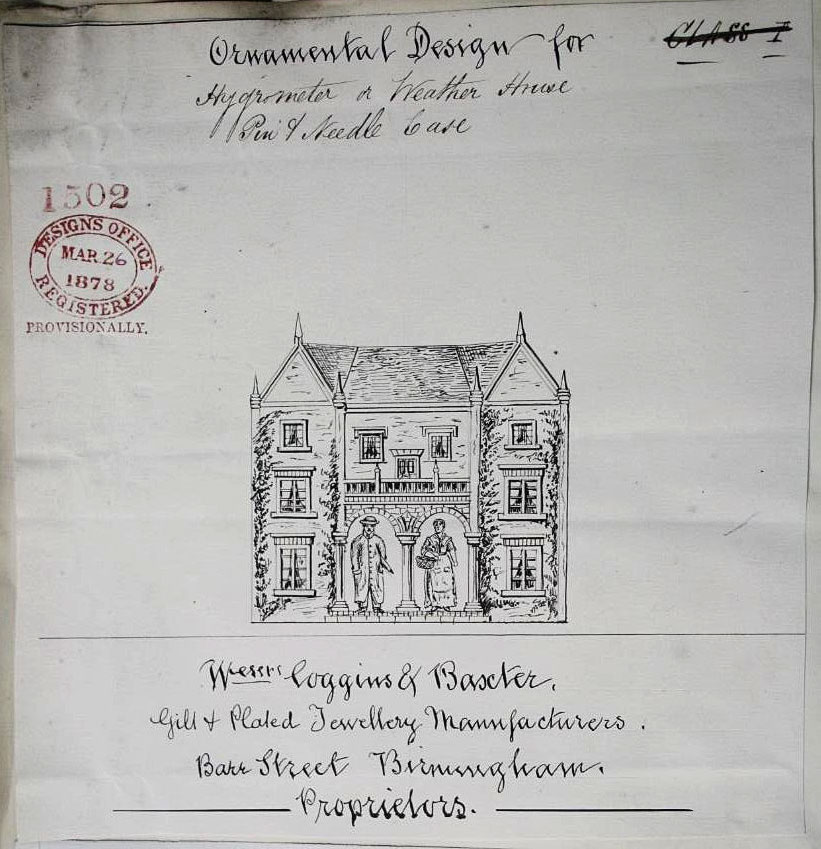 Ornamental Design for
CLASS I
Hygrometer or Weather House
Pin & Needle Case
1502
DESIGNS OFFICE
MAR. 26
1878
REGISTERED.
PROVISIONALLY.
Messrs Coggins & Baxter.
Gilt & Plated Jewellery Manufacturers.
Barr Street Birmingham.
Proprietors.